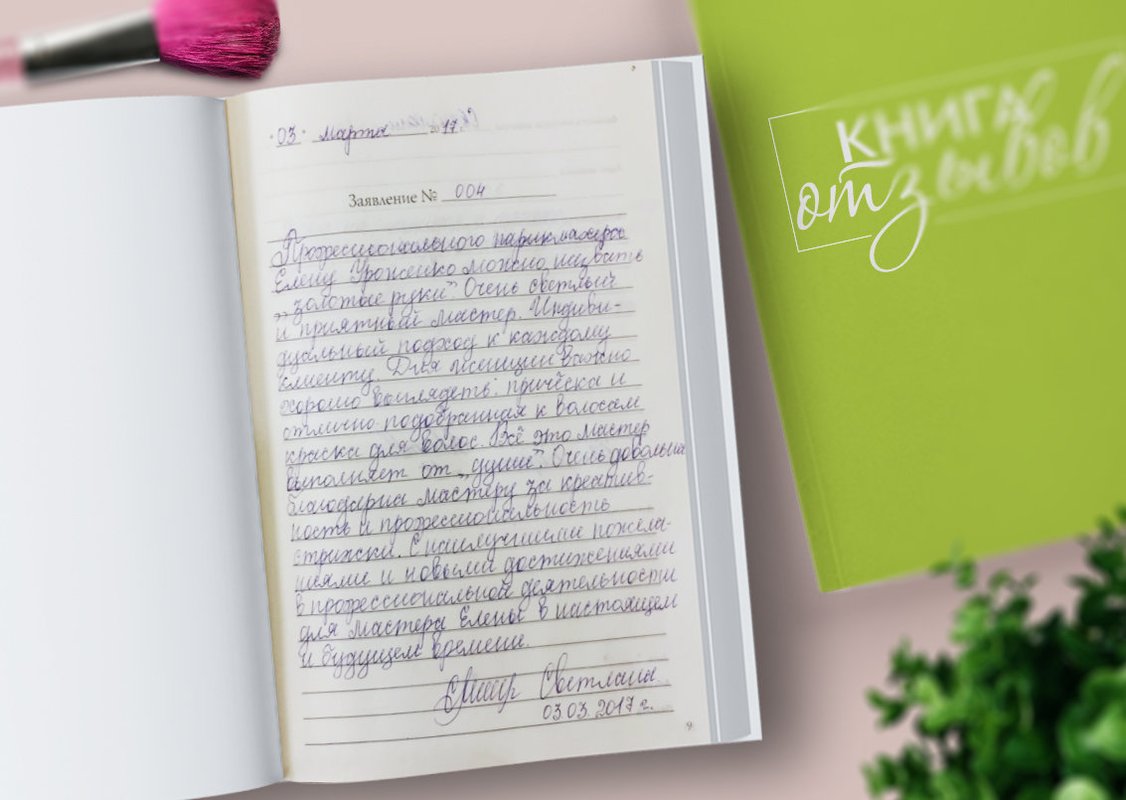 "03" марта 2017
Заявление № 004
Профессионального парикмахера
Елену Уроженко можно назвать
„золотые руки". Очень светлый
и приятный мастер. Индиви-
дуальный подход к каждому
клиенту. Для женщин важно
хорошо выглядеть: причёска и
отлично подобранная к волосам
краска для волос. Всё это мастер
выполняет от „души". Очень довольна
благодарна мастеру за креатив-
ность и профессиональность
стрижки. С наилучшими пожела-
ниями и новыми достижениями
в профессиональной деятельности
для мастера Елены в настоящем
и будущем времени.
Светлана
03.03.2017 г.
9
КНИГА
отзывов